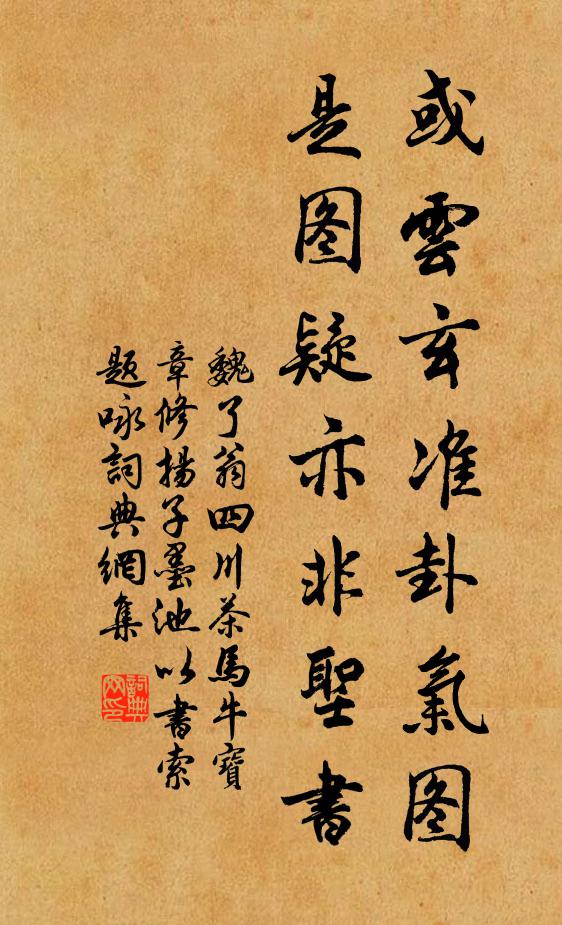 或雲玄准卦氣图
是图疑亦非聖書
魏了翁四川茶馬牛寶
章修揚子墨池以書索
题咏詞典網集
詞典
网印